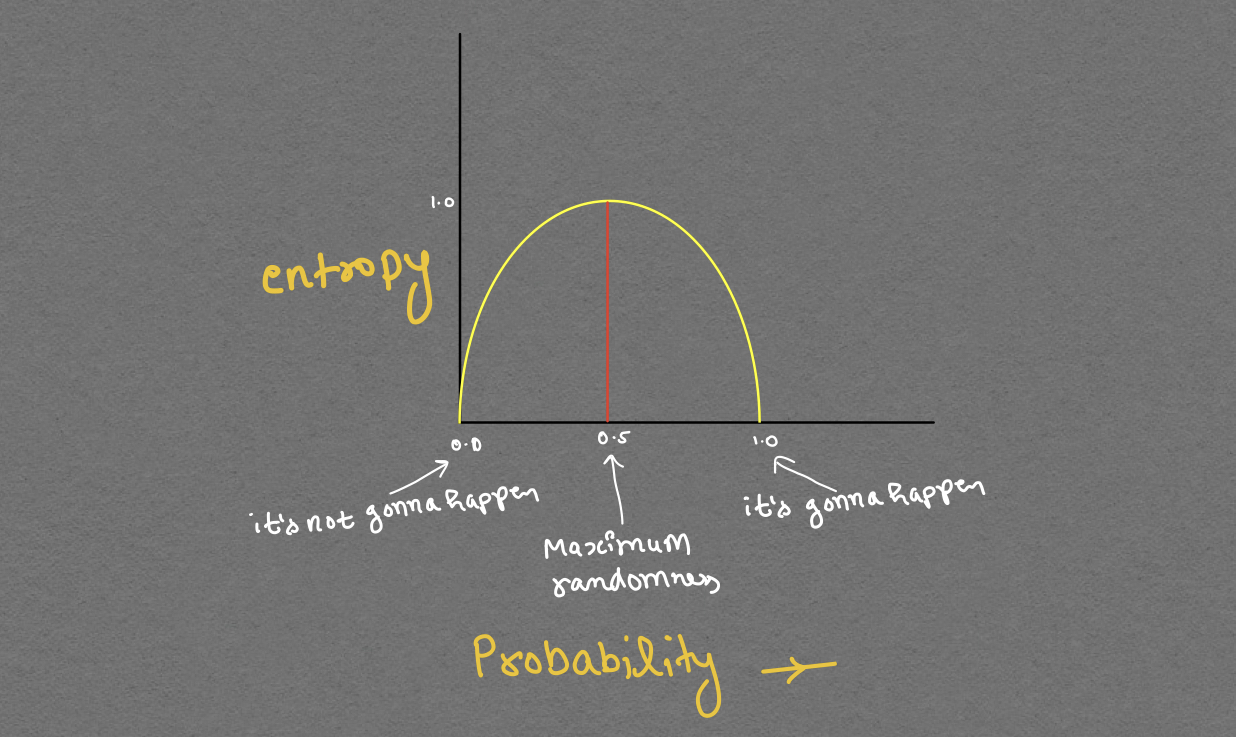 1.0
entropy
0.0
0.5
1.0
it's not gonna happen
Maximum
randomness
it's gonna happen
Probability